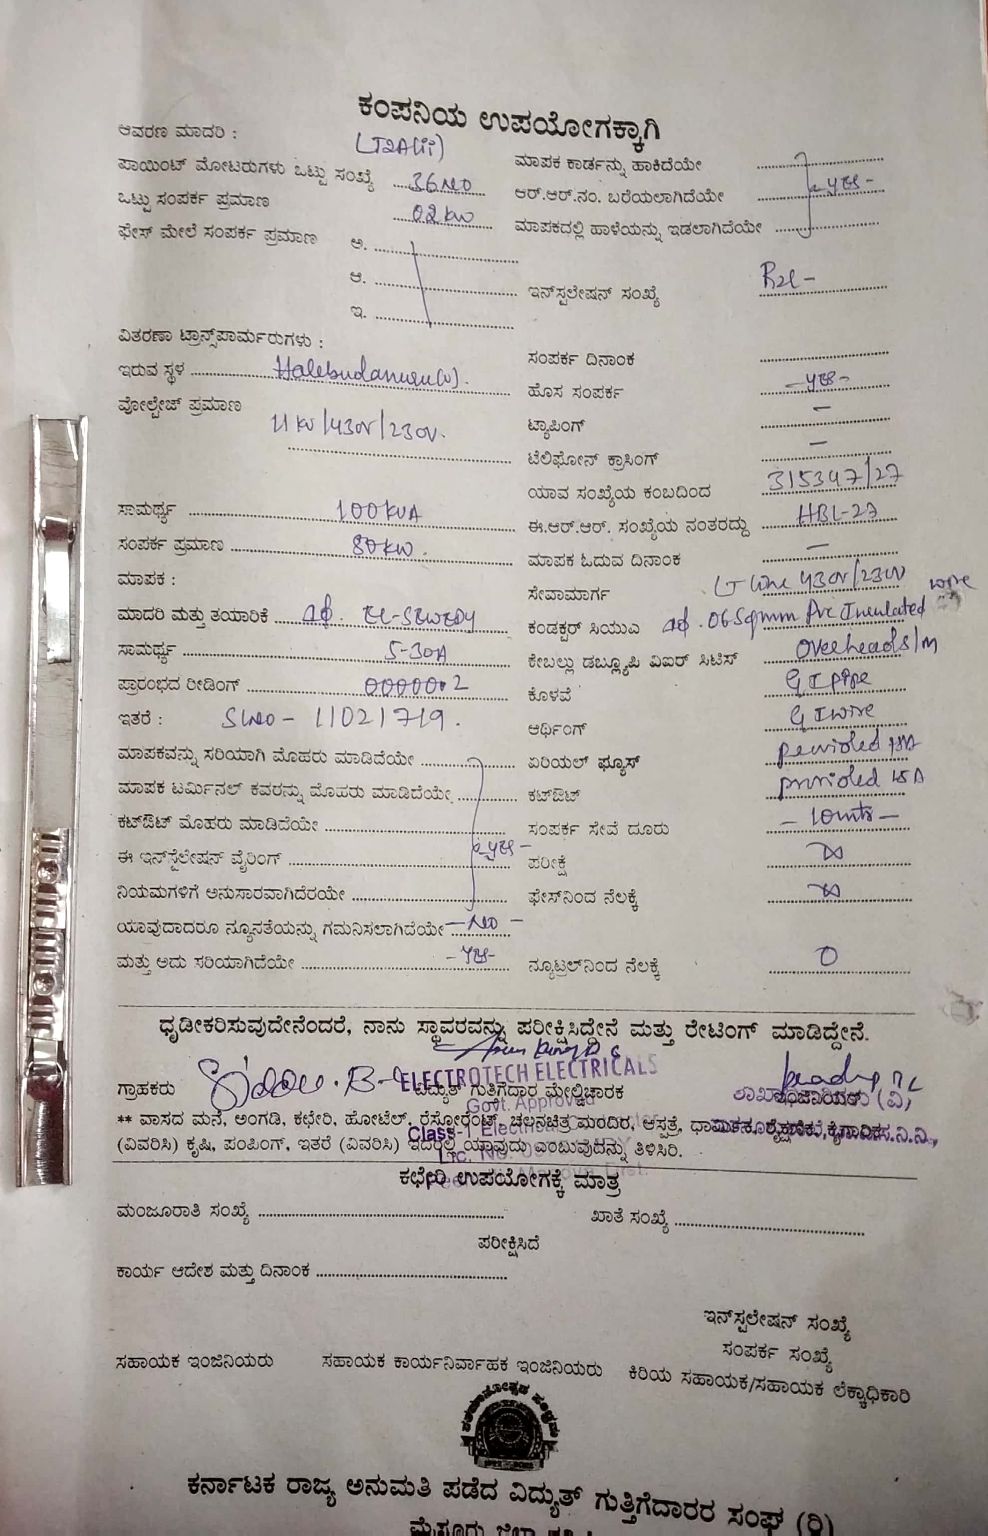 ಕಂಪನಿಯ ಉಪಯೋಗಕ್ಕಾಗಿ
ಆವರಣ ಮಾದರಿ : LT2A(ii)
ಪಾಯಿಂಟ್ ಮೋಟರುಗಳು ಒಟ್ಟು ಸಂಖ್ಯೆ 36 NO
ಒಟ್ಟು ಸಂಪರ್ಕ ಪ್ರಮಾಣ 02 KW
ಫೇಸ್ ಮೇಲೆ ಸಂಪರ್ಕ ಪ್ರಮಾಣ ಅ.
ಆ.
ಇ.
ಮಾಪಕ ಕಾರ್ಡನ್ನು ಹಾಕಿದೆಯೇ
ಆರ್.ಆರ್.ನಂ. ಬರೆಯಲಾಗಿದೆಯೇ - yes -
ಮಾಪಕದಲ್ಲಿ ಹಾಳೆಯನ್ನು ಇಡಲಾಗಿದೆಯೇ
ಇನ್‌ಸ್ಟಲೇಷನ್ ಸಂಖ್ಯೆ
ವಿತರಣಾ ಟ್ರಾನ್ಸ್‌ಫಾರ್ಮರುಗಳು :
ಇರುವ ಸ್ಥಳ
ವೋಲ್ಟೇಜ್ ಪ್ರಮಾಣ
11 KV/430V/230V.
ಸಾಮರ್ಥ್ಯ 100KVA
ಸಂಪರ್ಕ ಪ್ರಮಾಣ 80KW.
ಮಾಪಕ :
ಮಾದರಿ ಮತ್ತು ತಯಾರಿಕೆ
ಸಾಮರ್ಥ್ಯ 5-30A
ಪ್ರಾರಂಭದ ರೀಡಿಂಗ್
ಇತರೆ : SL NO - 11021719.
ಮಾಪಕವನ್ನು ಸರಿಯಾಗಿ ಮೊಹರು ಮಾಡಿದೆಯೇ
ಮಾಪಕ ಟರ್ಮಿನಲ್ ಕವರನ್ನು ಮೊಹರು ಮಾಡಿದೆಯೇ
ಕಟ್‌ಔಟ್ ಮೊಹರು ಮಾಡಿದೆಯೇ
ಈ ಇನ್‌ಸ್ಟೆಲೇಷನ್ ವೈರಿಂಗ್ - yes -
ನಿಯಮಗಳಿಗೆ ಅನುಸಾರವಾಗಿದೆರಯೇ
ಯಾವುದಾದರೂ ನ್ಯೂನತೆಯನ್ನು ಗಮನಿಸಲಾಗಿದೆಯೇ - NO -
ಮತ್ತು ಅದು ಸರಿಯಾಗಿದೆಯೇ - yes -
ಸಂಪರ್ಕ ದಿನಾಂಕ
ಹೊಸ ಸಂಪರ್ಕ - yes -
ಟ್ಯಾಪಿಂಗ್ -
ಟೆಲಿಫೋನ್ ಕ್ರಾಸಿಂಗ್ -
ಯಾವ ಸಂಖ್ಯೆಯ ಕಂಬದಿಂದ 315347/27
ಈ.ಆರ್.ಆರ್. ಸಂಖ್ಯೆಯ ನಂತರದ್ದು HBL-27
ಮಾಪಕ ಓದುವ ದಿನಾಂಕ -
ಸೇವಾಮಾರ್ಗ LT line 430V/230V
ಕಂಡಕ್ಟರ್ ಸಿಯುಎ 06 Sqmm Pvc Insulated wire
ಕೇಬಲ್ಲು ಡಬ್ಲ್ಯೂಪಿ ವಿಐರ್ ಸಿಟಿಸ್ overhead S/M
ಕೊಳವೆ G I pipe
ಆರ್ಥಿಂಗ್ G I wire
ಏರಿಯಲ್ ಫ್ಯೂಸ್ provided 15A
ಕಟ್‌ಔಟ್ provided 15A
ಸಂಪರ್ಕ ಸೇವೆ ದೂರು - 10mts -
ಪರೀಕ್ಷೆ ∞
ಫೇಸ್‌ನಿಂದ ನೆಲಕ್ಕೆ ∞
ನ್ಯೂಟ್ರಲ್‌ನಿಂದ ನೆಲಕ್ಕೆ 0
ಧೃಡೀಕರಿಸುವುದೇನೆಂದರೆ, ನಾನು ಸ್ಥಾವರವನ್ನು ಪರೀಕ್ಷಿಸಿದ್ದೇನೆ ಮತ್ತು ರೇಟಿಂಗ್ ಮಾಡಿದ್ದೇನೆ.
ELECTROTECH ELECTRICALS
ಗ್ರಾಹಕರು ವಿದ್ಯುತ್ ಗುತ್ತಿಗೆದಾರ ಮೇಲ್ವಿಚಾರಕ
** ವಾಸದ ಮನೆ, ಅಂಗಡಿ, ಕಛೇರಿ, ಹೋಟೆಲ್, ರೆಸ್ಟೋರೆಂಟ್, ಚಲನಚಿತ್ರ ಮಂದಿರ, ಆಸ್ಪತ್ರೆ,
(ವಿವರಿಸಿ) ಕೃಷಿ, ಪಂಪಿಂಗ್, ಇತರೆ (ವಿವರಿಸಿ) ಇದರಲ್ಲಿ ಯಾವುದು ಎಂಬುವುದನ್ನು ತಿಳಿಸಿರಿ.
ಕಛೇರಿ ಉಪಯೋಗಕ್ಕೆ ಮಾತ್ರ
ಮಂಜೂರಾತಿ ಸಂಖ್ಯೆ ಖಾತೆ ಸಂಖ್ಯೆ
ಪರೀಕ್ಷಿಸಿದೆ
ಕಾರ್ಯ ಆದೇಶ ಮತ್ತು ದಿನಾಂಕ
ಇನ್‌ಸ್ಟಲೇಷನ್ ಸಂಖ್ಯೆ
ಸಂಪರ್ಕ ಸಂಖ್ಯೆ
ಸಹಾಯಕ ಇಂಜಿನಿಯರು ಸಹಾಯಕ ಕಾರ್ಯನಿರ್ವಾಹಕ ಇಂಜಿನಿಯರು ಕಿರಿಯ ಸಹಾಯಕ/ಸಹಾಯಕ ಲೆಕ್ಕಾಧಿಕಾರಿ
ಕರ್ನಾಟಕ ರಾಜ್ಯ ಅನುಮತಿ ಪಡೆದ ವಿದ್ಯುತ್ ಗುತ್ತಿಗೆದಾರರ ಸಂಘ (ರಿ)
ಮೈಸೂರು ಜಿಲ್ಲಾ